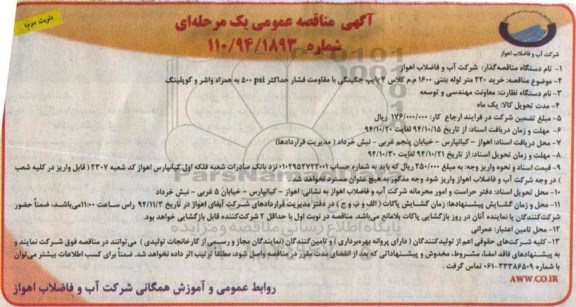 نوبت دوم
آگهی مناقصه عمومی یک مرحله‌ای
شماره ۱۱۰/۹۴/۱۸۹۳
شرکت آب و فاضلاب اهواز
۱- نام دستگاه مناقصه‌گذار: شرکت آب و فاضلاب اهواز
۲- موضوع مناقصه: خرید ۴۲۰ متر لوله بتنی ۱۶۰۰ م.م کلاس ۴ پایپ جکینگی با مقاومت فشار حداکثر ۵۰۰ psi به همراه واشر و کوپلینگ
۳- نام دستگاه نظارت: معاونت مهندسی و توسعه
۴- مدت تحویل کالا: یک ماه
۵- مبلغ تضمین شرکت در فرایند ارجاع کار: ۱۷۶/۰۰۰/۰۰۰ ریال
۶- مهلت و زمان دریافت اسناد: از تاریخ ۹۴/۱۰/۱۵ لغایت ۹۴/۱۰/۲۰
۷- محل دریافت اسناد: اهواز - کیانپارس - خیابان پنجم غربی - نبش خرداد (مدیریت قراردادها)
۸- مهلت و زمان تحویل اسناد: از تاریخ ۹۴/۱۰/۲۱ لغایت ۹۴/۱۰/۳۰
۹- قیمت اسناد و نحوه واریز وجه: به مبلغ ۲۵۰/۰۰۰ ریال که باید به شماره حساب ۰۱۰۲۹۵۲۷۲۲۰۰۱ نزد بانک صادرات شعبه فلکه اول کیانپارس اهواز کد شعبه ۲۳۰۷ (قابل واریز در کلیه شعب
) در وجه شرکت آب و فاضلاب اهواز واریز شود وجه مذکور به هیچ عنوان مسترد نخواهد شد.
۱۰- محل تحویل اسناد: دفتر حراست و امور محرمانه شرکت آب و فاضلاب اهواز به نشانی: اهواز - کیانپارس - خیابان ۵ غربی - نبش خرداد
۱۱- محل و زمان گشایش پیشنهادها: زمان گشایش پاکات (الف و ب و ج) در دفتر مدیریت قراردادهای شرکت آبفای اهواز در تاریخ ۹۴/۱۱/۳ راس ساعت ۱۱:۰۰می‌باشد، ضمناً حضور
شرکت‌کنندگان یا نماینده آنان در روز بازگشایی پاکات بلامانع می‌باشد. مناقصه در نوبت اول با حداقل ۲ شرکت‌کننده قابل بازگشایی خواهد بود.
۱۲- محل تامین اعتبار: عمرانی
۱۳- کلیه شرکت‌های حقوقی اعم از تولیدکنندگان (دارای پروانه بهره‌برداری) و تامین‌کنندگان (نمایندگان مجاز و رسمی از کارخانجات تولیدی) می‌توانند در مناقصه فوق شرکت نمایند و
به پیشنهادهای فاقد امضا، مشروط، مخدوش و پیشنهاداتی که بعد از انقضای مدت مقرر در مناقصه واصل شود، مطلقاً ترتیب اثر داده نخواهد شد. ضمناً برای کسب اطلاعات بیشتر می‌توان
با شماره ۳۳۳۸۶۵۰۹-۰۶۱ تماس گرفت.
AWW.CO.IR
روابط عمومی و آموزش همگانی شرکت آب و فاضلاب اهواز